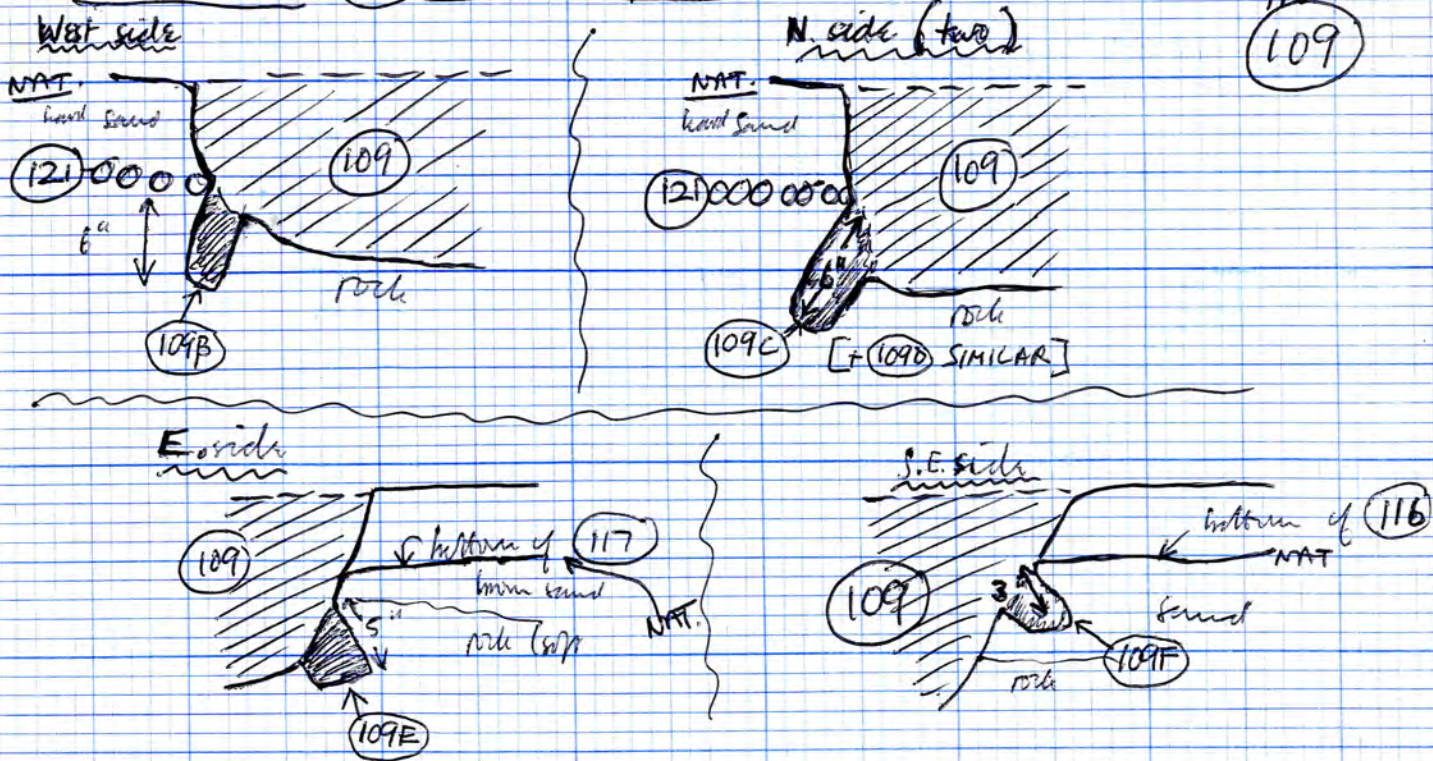 109
West side
NAT.
hard sand
121
109
6"
rock
109B
N. side (two)
NAT.
hard sand
121
109
6"
rock
109C
[+ 109D SIMILAR]
E. side
109
bottom of 117
brown sand
NAT.
5"
rock (soft
109E
S.E. side
109
bottom of 116
NAT
3"
sand
109F
rock